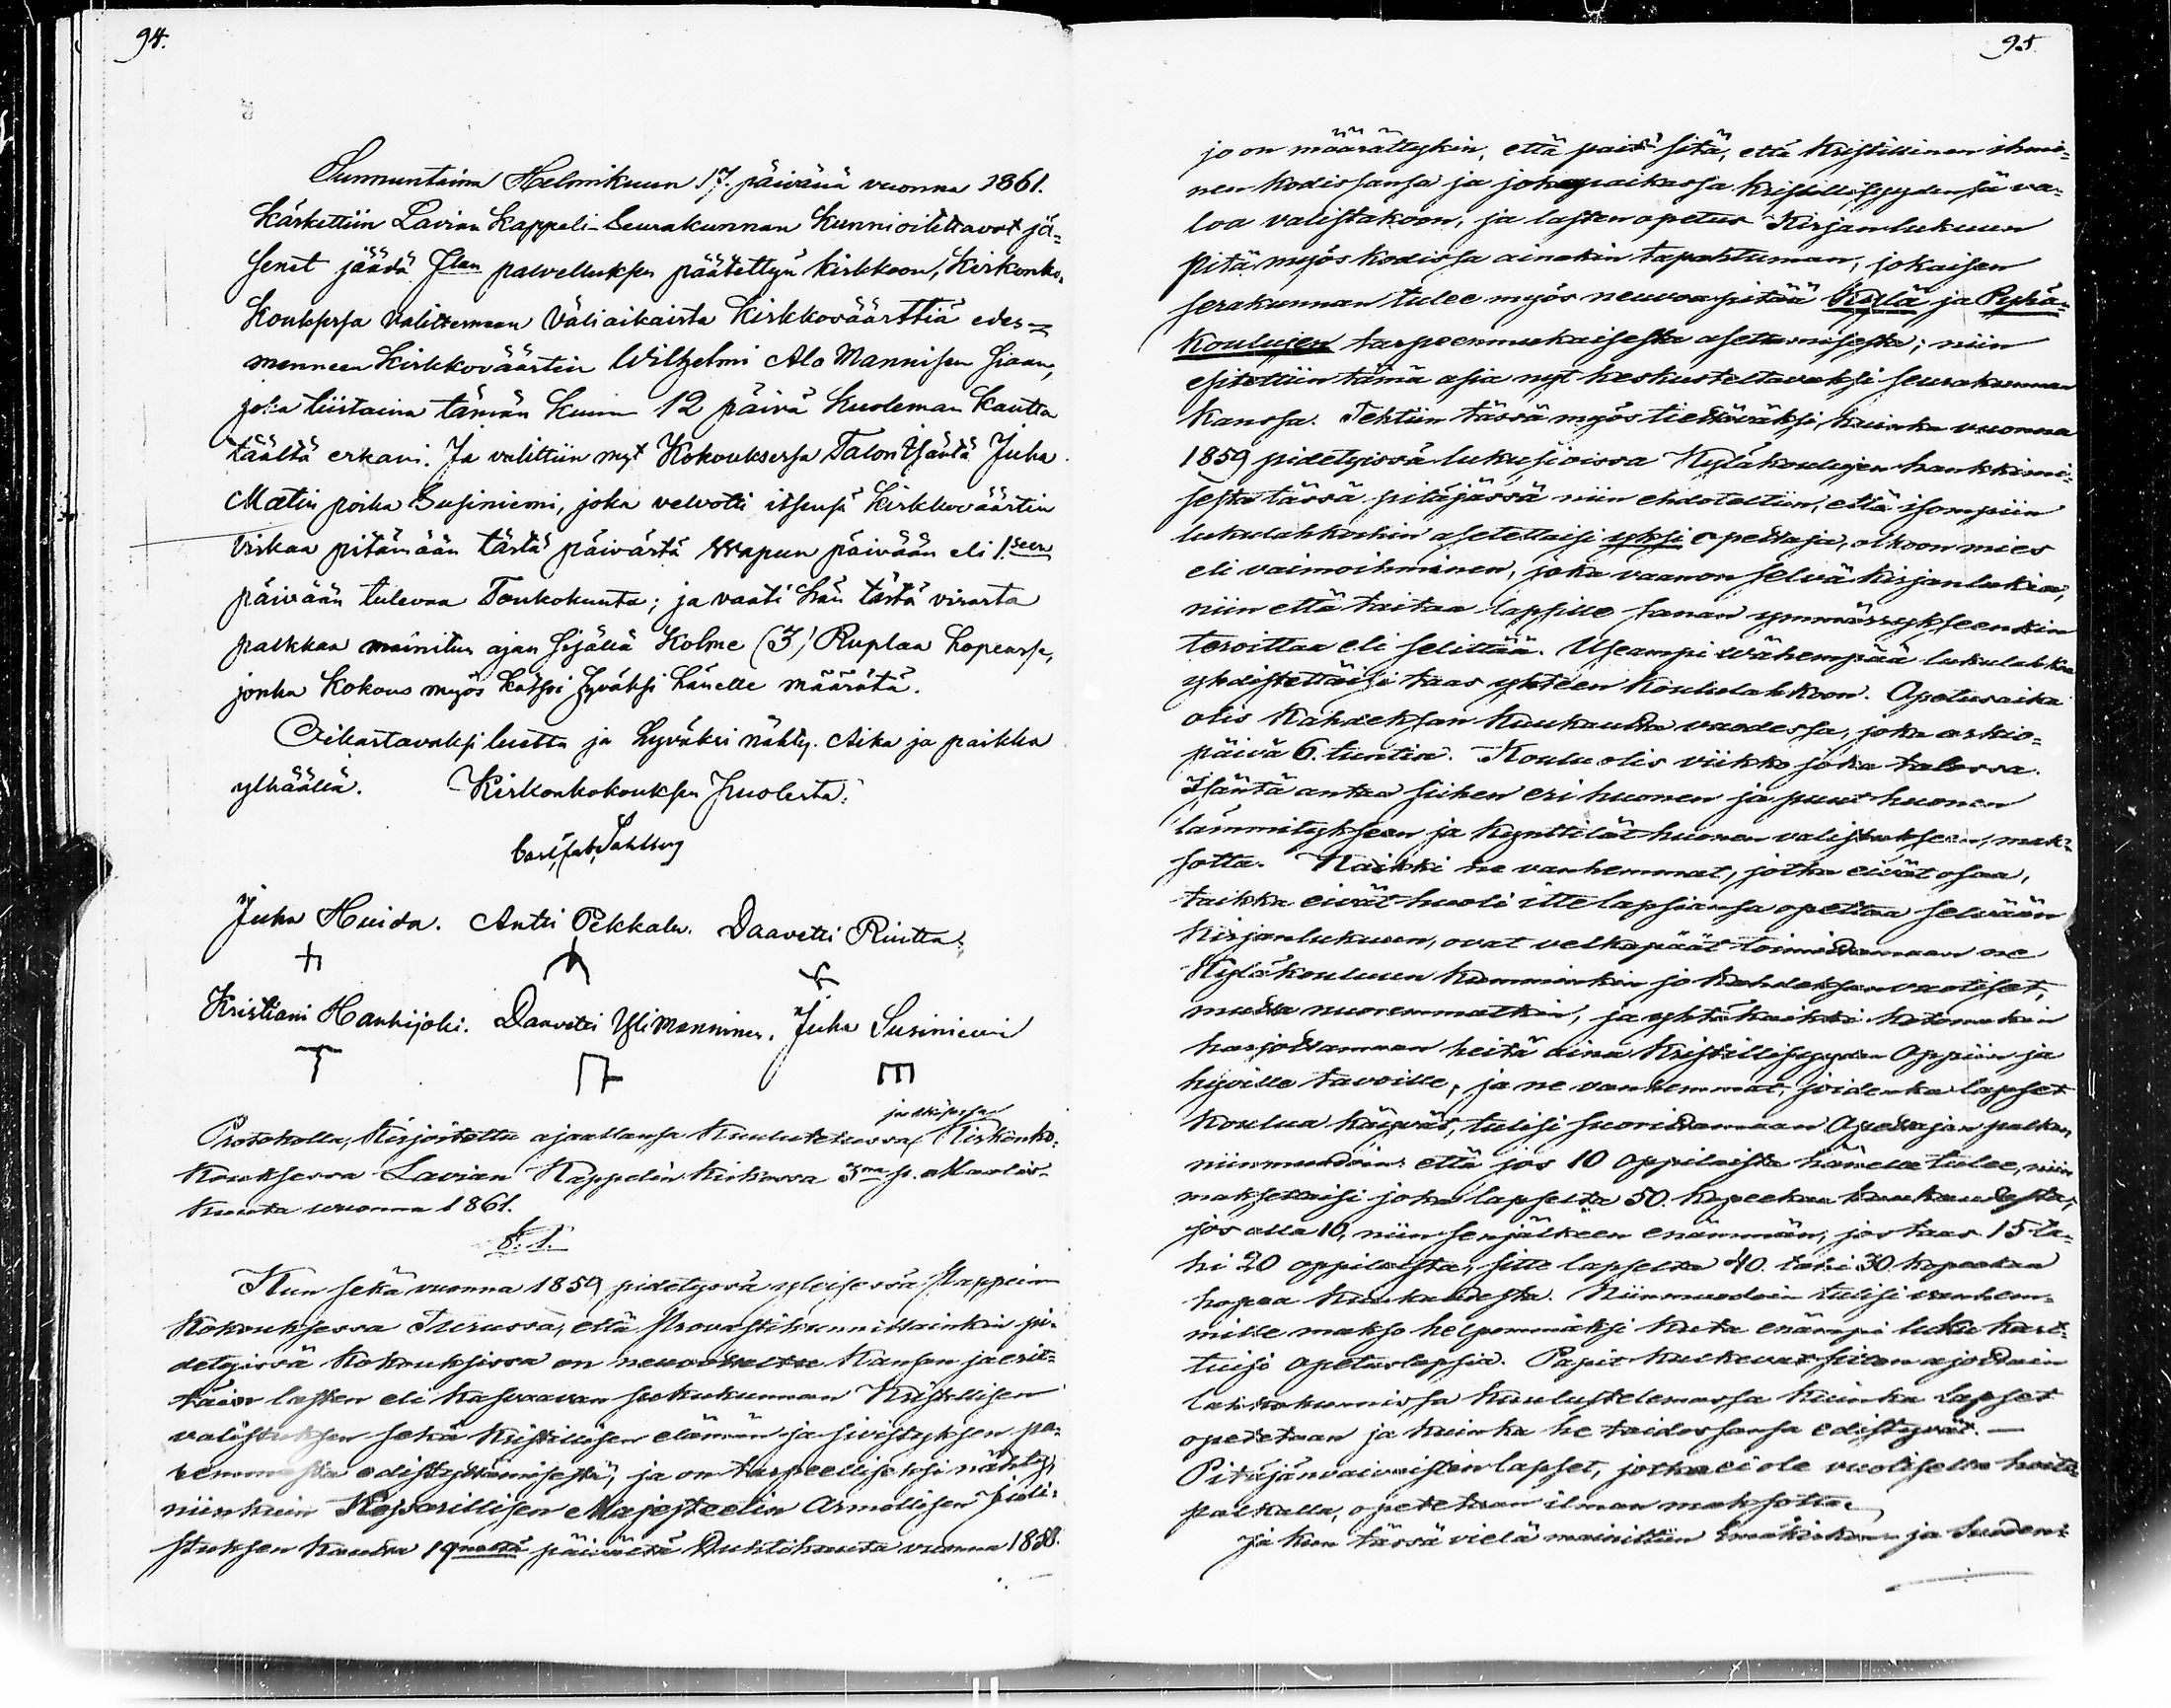 94.
Sunnuntaina Helmikuun 17. päivänä vuonna 1861.
Kärkettiin Lavian Kappeli-Seurakunnan Kunnioitettavat jä-
senet jäädä Jlan palvelluksen päätettyä kirkkoon, Kirkonko-
Kouksessa Valitsemaan Väliaikaista Kirkkoväärttiä edes-
menneen Kirkkoväärtin Wilhelmi Ala Mannisen siaan,
joka tiistaina tämän Kuun 12 päivä Kuoleman Kautta
täältä erkani. Ja valittiin nyt Kokouksessa Talon Isäntä Juha
Matin poika Susiniemi, joka velvotti itsensä Kirkkoväärtin
Virkaa pitämään tästä päivästä Wapun päivään eli 1.seen
päivään tulevaa Toukokuuta; ja vaati hän tästä virasta
palkkaa mainitun ajan sisällä Kolme (3) Ruplaa hopeassa,
jonka Kokous myös Katsoi hyväksi hänelle määrätä.
Oikastavaksi luettu ja hyväksi nähty. Aika ja paikka
ylhäällä. Kirkonkokouksen puolesta:
Carl Sahlberg
Juha Huida. Antti Pekkala. Daavetti Riutta.
Kristiani Hankijoki. Daavetti Yli Manninen. Juha Susiniemi
Protokolla, Kirjoitettu ajaallansa Kuulutetussa Kirkonko-
Kouksessa Lavian Kappelin Kirkossa 3na p. Maalis-
kuuta vuonna 1861.
§. 1.
Kun sekä vuonna 1859 pidetyssä yleisessä Pappein
Kokouksessa Turussa, että Provastikunnittainkin pi-
detyissä Kokouksissa on Kansan ja erit-
täin lasten eli Kasvaavan sukukunnan Kristillisen
valistuksen sekä Kristillisen elämän ja sivistyksen pa-
remmasta edistyttämisestä, ja on tarpeelliseksi nähty,
niinkuin Keisarillisen Majesteetin Armollisen
Kautta 19 päivältä Huhtikuuta vuonna 1858.
95.
jo on määrättykin, että paitsi sitä, että Kristillinen ihmi-
nen kodissansa ja jokapaikassa kristillisyydensä va-
loa valistakoon, ja lasten opetus Kirjanlukuun
pitä myös kodissa ainakin tapahtuman, jokaisen
serakunnan tulee myös neuvoa pitää Kylä ja Pyhä-
Koulujen tarpeenmukaisesta asettamisesta; niin
esitettiin tämä asia nyt keskusteltavaksi seurakunnan
Kanssa. Tehtiin tässä myös tiettäväksi, kuinka vuonna
1859 pidetyissä lukusioissa Kyläkoulujen hankkimi-
sesta tässä pitäjässä niin ehdoteltiin, että isompiin
lukulahkoihin asetettaisi yksi opettaja, olkoon mies
eli vaimoihminen, joka vaan on selvä kirjanlukia,
niin että taitaa lapsille sanan ymmärrykseenkin
teroittaa eli selittää. Useampi vähempää lukulahkoa
yhdistettäisi taas yhteen Koululahkoon. Opetusaika
olis Kahdeksan Kuukautta vuodessa, joka arkio-
päivä 6. tuntia. Koulu olis viikko joka talossa.
Isäntä antaa siihen eri huonen ja puut huonen
lämmitykseen ja kynttilät huonen valistukseen, mak-
sotta. Kaikki ne vanhemmat, jotka eivät osaa,
taikka eivät huoli itte lapsiansa opettaa selvään
Kirjanlukuun, ovat velkapäät toimittamaan ne
Kyläkouluun Kumminkin jo Kahdeksanvuotiset,
mutta nuoremmatkin, ja yhtäkaikki kotonakin
harjottamaan heitä aina Kristillisyyden Oppiin ja
hyville tavoille, ja ne vanhemmat, joidenka lapset
Koulua käyvät, tulisi suorittamaan Opettajan palkan,
niinmuodoin että jos 10 oppilaista hänelle tulee, niin
maksettaisi joka lapselta 50. kopeekaa kuukaudesta,
jos alla 10, niin senjälkeen enämmän; jos taas 15 ta-
hi 20 oppilaista, sitte lapselta 40. tahi 30 kopeekaa
hopea Kuukaudesta. Niinmuodoin tulisi vanhem-
mille makso helpommaksi kuta enämpi luku kart-
tuisi opetuslapsia. Papit kulkevat sillon ajottain
lukukunnissa kuulustelemassa kuinka lapset
opetetaan ja kuinka he taidossansa edistyvät. —
Pitäjänvaivaisten lapset, jotka ei ole vuotisella hoito-
palkalla, opetetaan ilman maksotta.
Ja kun tässä vielä mainittiin Emäkirkon ja Suoden-